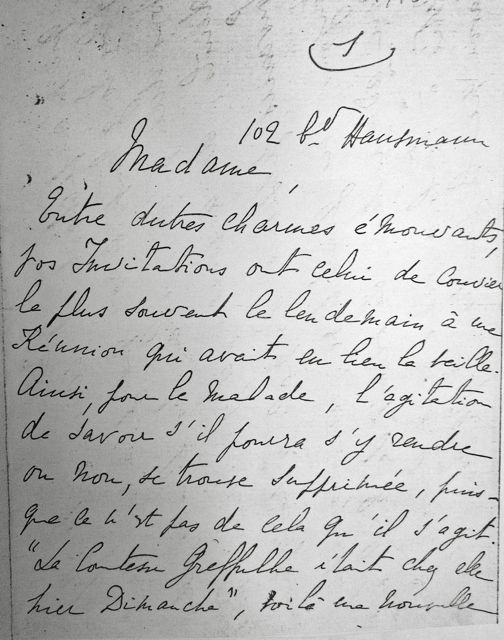 1
102 bd Haussmann
Madame,
Entre autres charmes émouvants,
vos Invitations ont celui de convier
le plus souvent le lendemain à une
Réunion qui avait eu lieu la veille.
Ainsi, pour le malade, l'agitation
de savoir s'il pourra s'y rendre
ou non, se trouve supprimée, puis-
que ce n'est pas de cela qu'il s'agit.
"La Comtesse Greffulhe était chez elle
hier Dimanche", voilà une nouvelle